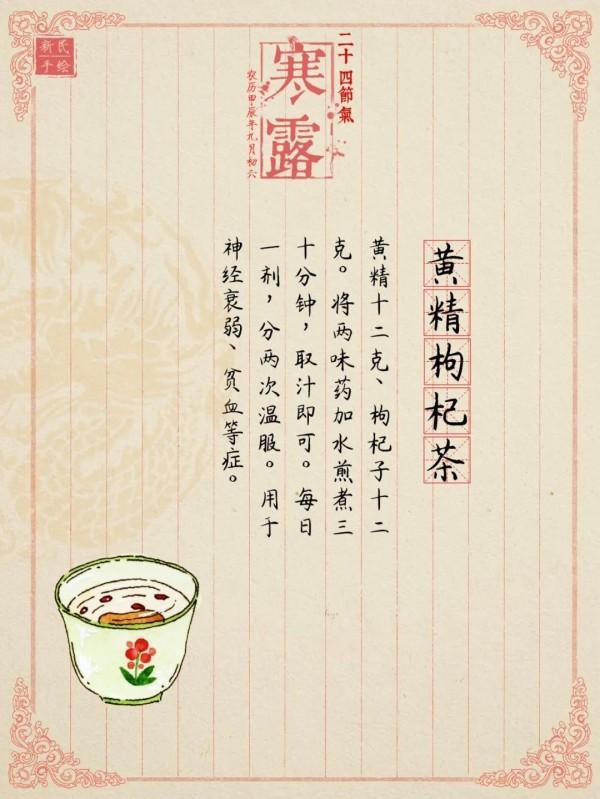 新民
手绘
二十四節氣
寒露
农历甲辰年九月初六
黄精枸杞茶
黄精十二克、枸杞子十二
克。将两味药加水煎煮三
十分钟，取汁即可。每日
一剂，分两次温服。用于
神经衰弱、贫血等症。